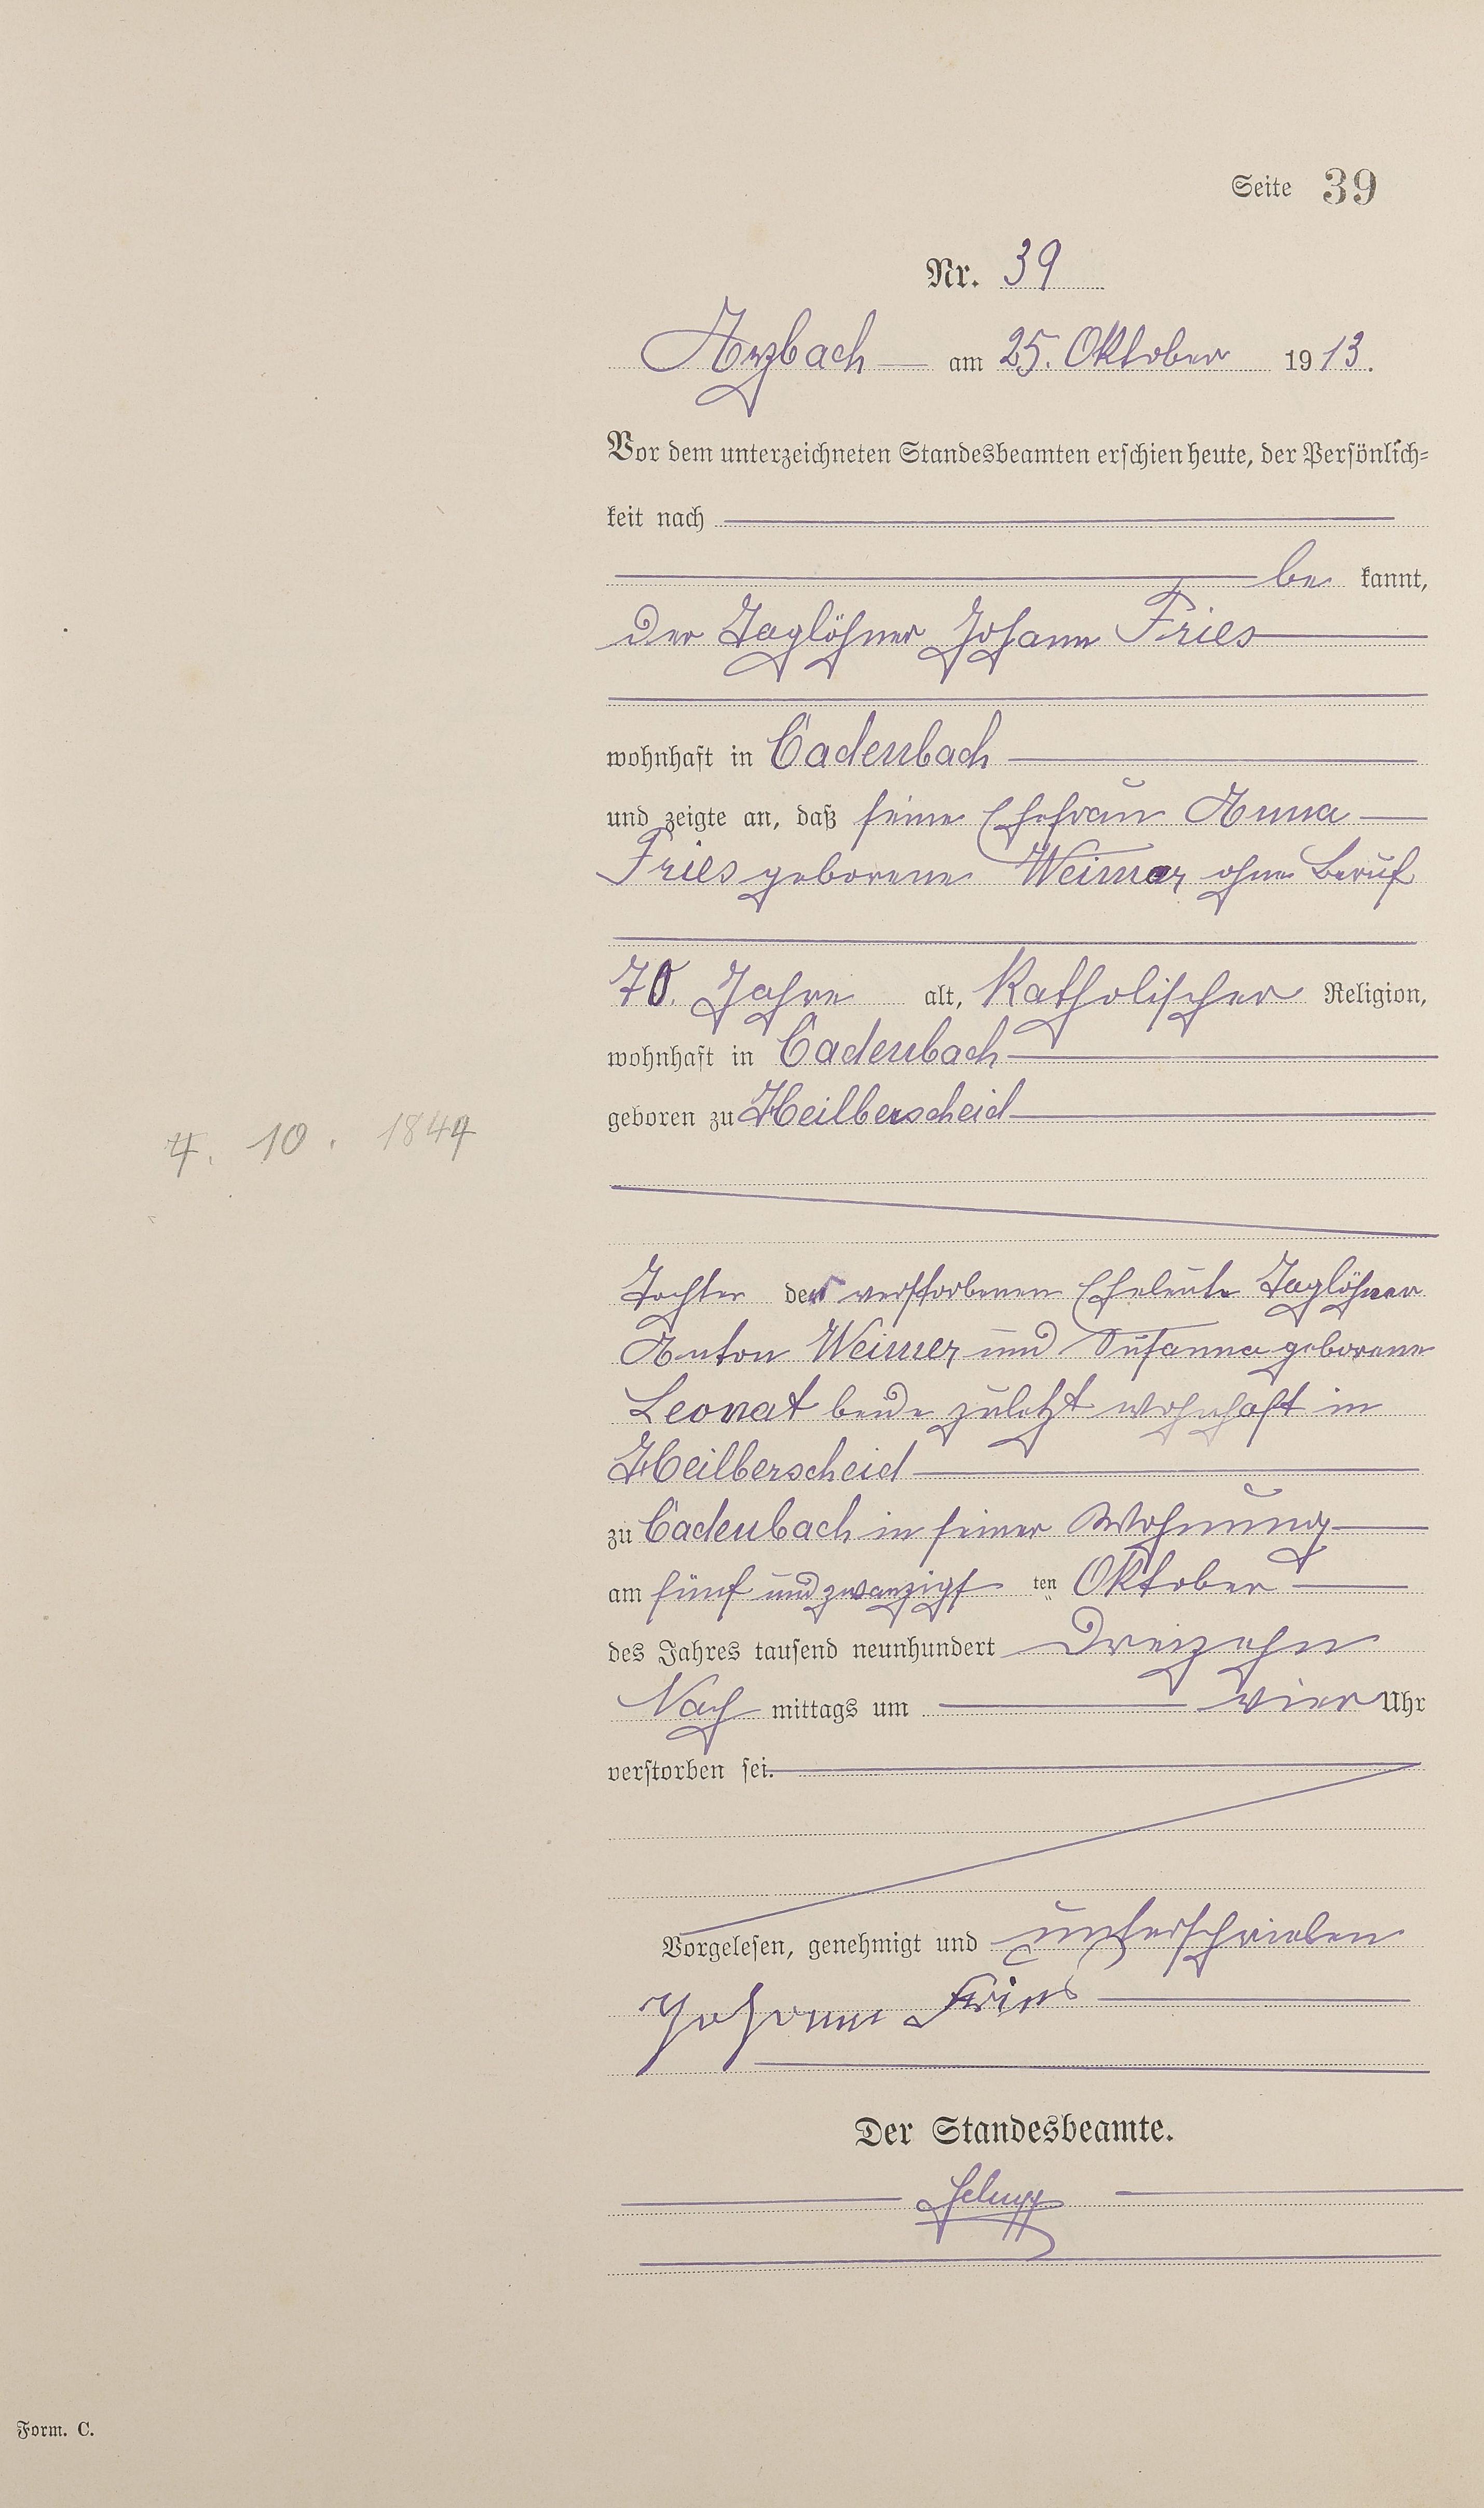 Seite 39
Nr. 39
Arzbach am 25. Oktober 1913.
Vor dem unterzeichneten Standesbeamten erschien heute, der Persönlich=
keit nach
be kannt,
der Taglöhner Johann Fries
wohnhaft in Cadenbach
und zeigte an, daß seine Ehefrau Anna
Fries geborene Weimer ohne Beruf
70 Jahre alt, katholischer Religion,
wohnhaft in Cadenbach
geboren zu Heilberscheid
4. 10. 1844
Tochter der verstorbenen Eheleute Taglöhner
Anton Weimer und Susanna geborene
Leonat beide zuletzt wohnhaft in
Heilberscheid
zu Cadenbach in seiner Wohnung
am fünf und zwanzigsten Oktober
des Jahres tausend neunhundert dreizehn
Nach mittags um vier Uhr
verstorben sei.
Vorgelesen, genehmigt und unterschrieben
Johann Fries
Der Standesbeamte.
Form. C.